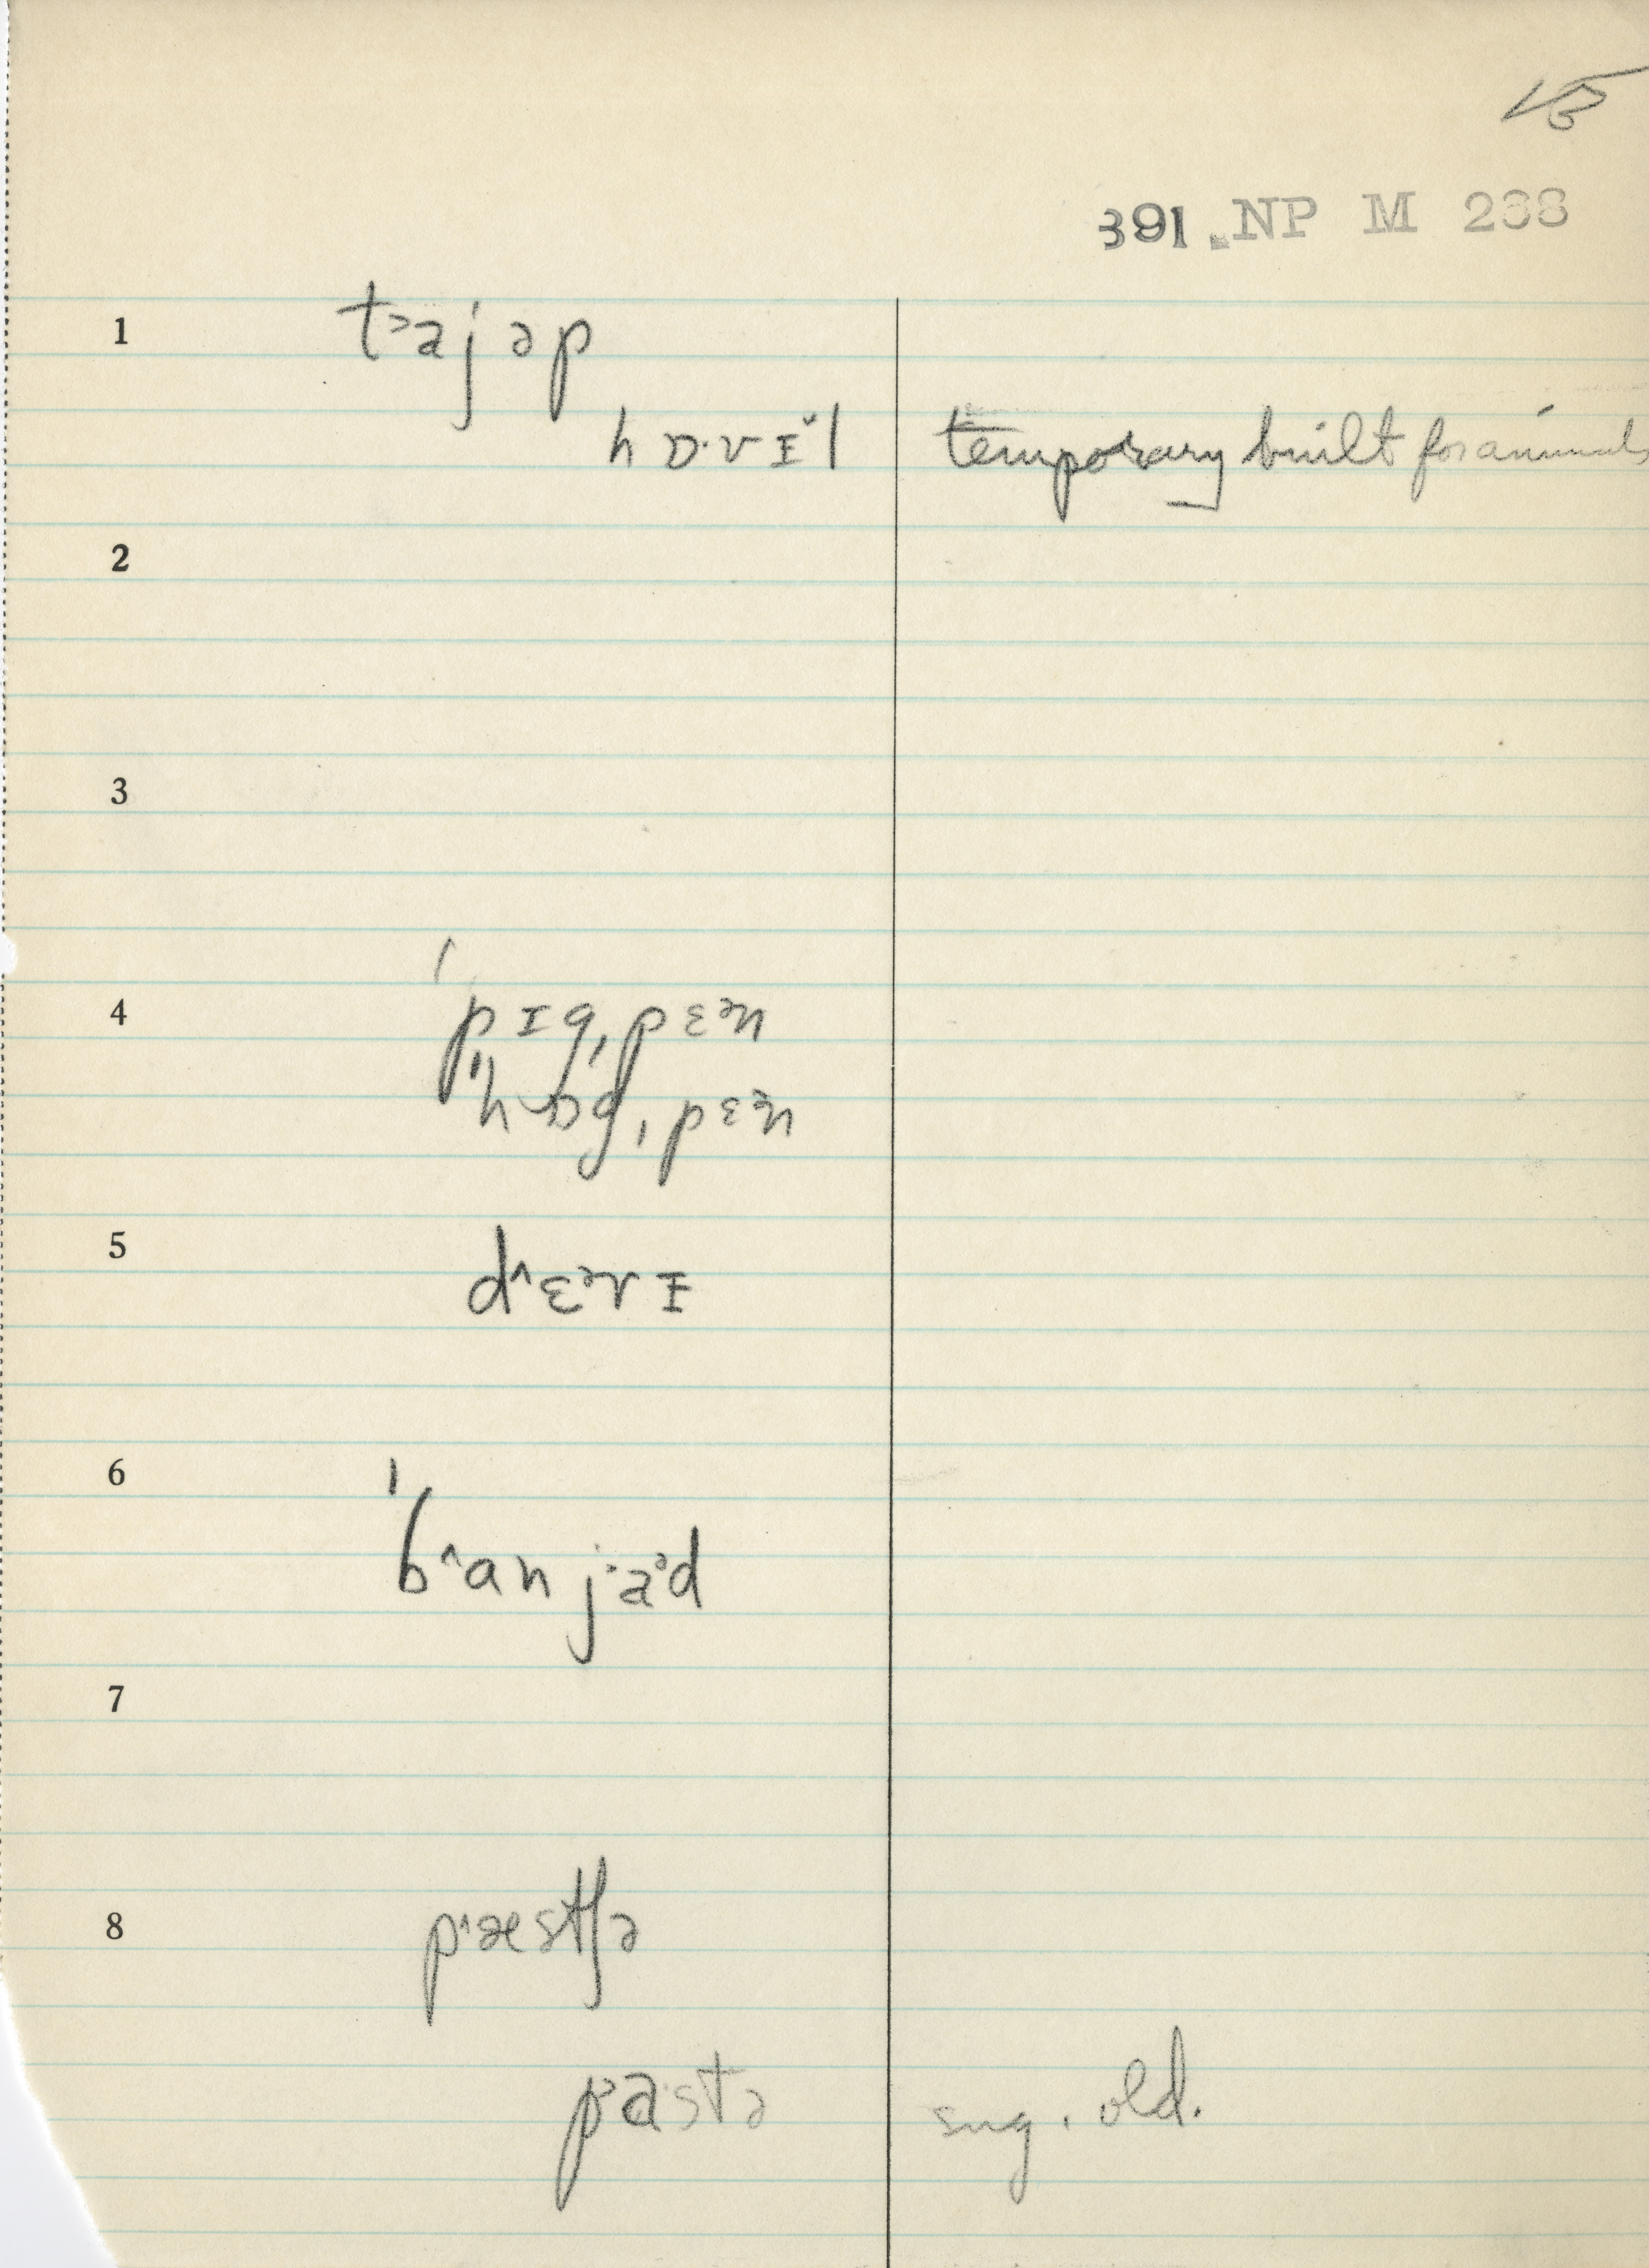 15
391. NP M 238
1 t˃ajəp
hɒ·vɪ̆l temporary built for animals
2
3
4 ˈpɪg,pɛᵊn
ˈhɒg,pɛᵊn
5 d^ɛᵊrɪ
6 ˈb^anj·aᵊd
7
8 p^æstʃə
p˃astə sug. old.